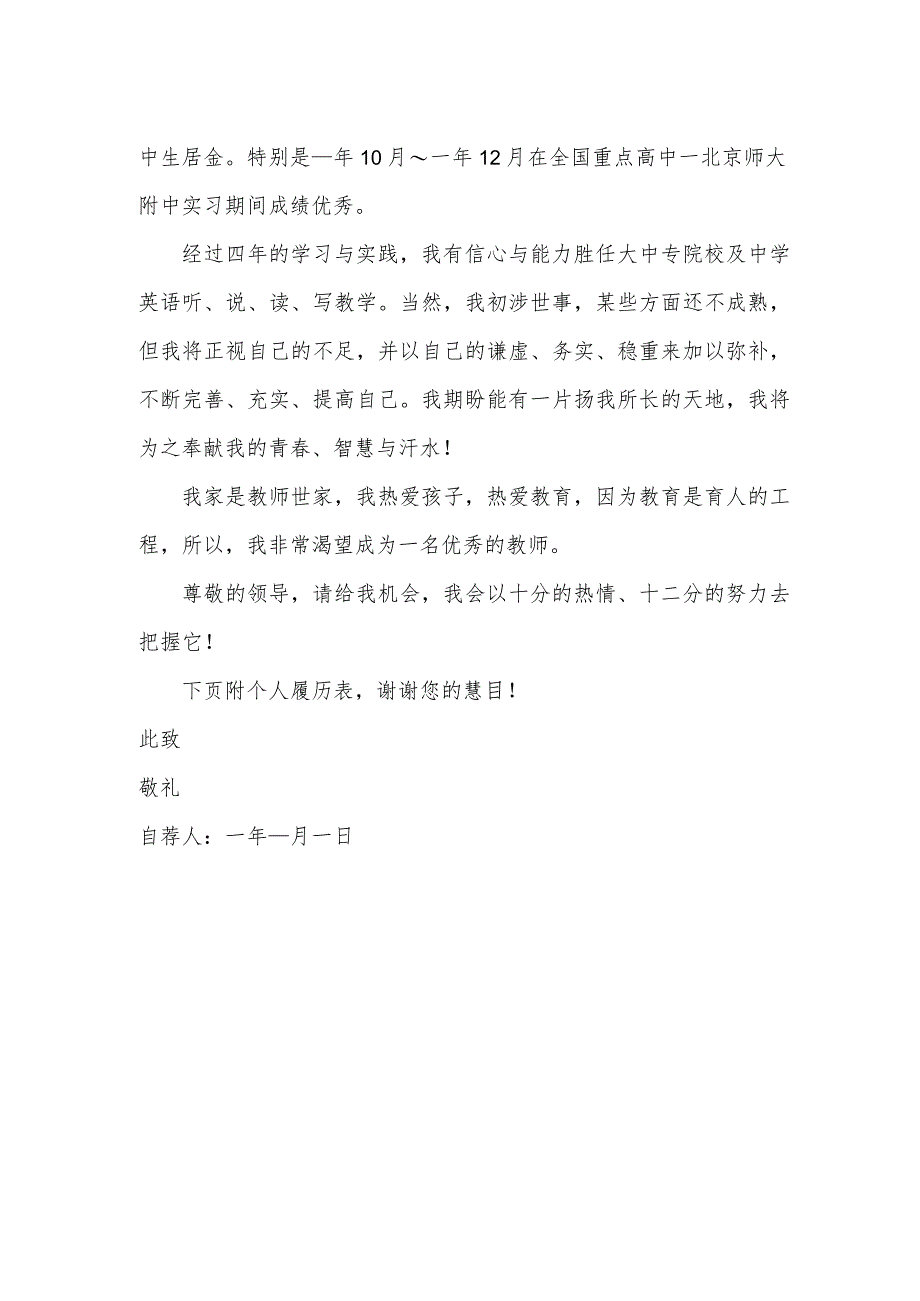 中生居金。特别是—年10月～一年12月在全国重点高中一北京师大
附中实习期间成绩优秀。
经过四年的学习与实践，我有信心与能力胜任大中专院校及中学
英语听、说、读、写教学。当然，我初涉世事，某些方面还不成熟，
但我将正视自己的不足，并以自己的谦虚、务实、稳重来加以弥补，
不断完善、充实、提高自己。我期盼能有一片扬我所长的天地，我将
为之奉献我的青春、智慧与汗水！
我家是教师世家，我热爱孩子，热爱教育，因为教育是育人的工
程，所以，我非常渴望成为一名优秀的教师。
尊敬的领导，请给我机会，我会以十分的热情、十二分的努力去
把握它！
下页附个人履历表，谢谢您的慧目！
此致
敬礼
自荐人：一年—月一日